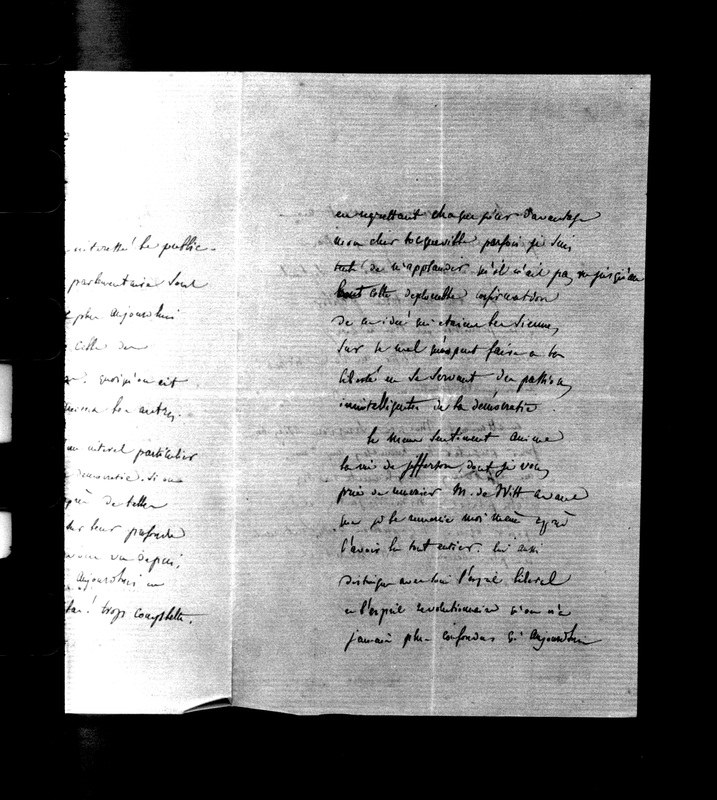 interessé le public
parlementaire sont
plus aujourdhui
celle de
quoiqu'on ait
les autres.
un interet particulier
democratie. Si on
de telles
leur profonde
vu depuis,
aujourdhui en
trop complette.
en regrettant chaque jour davantage
mon cher tocqueville parfois je suis
tenté de m'applaudir qu'il n'ait pas vu jusqu'au
bout cette deplorable confirmation
de ses idées qui etaient les siennes
Sur le mal que peut faire a la
liberté en se servant des passions
inintelligentes de la démocratie.
le meme Sentiment anime
la vie de jefferson, dont je vous
prie de remercier M. de Witt avant
que je le remercie moi meme après
l'avoir lu tout entier. lui aussi
distingue avec soin l'esprit liberal
et l'esprit revolutionnaire qu'on n'a
jamais plus confondus qu'aujourdhui